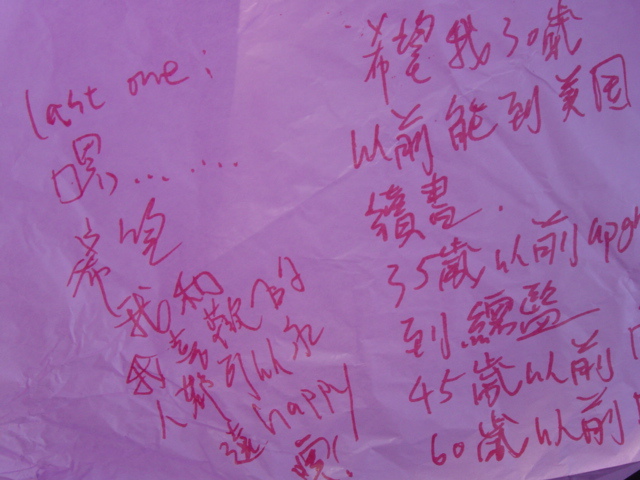 last one :
嗯.........
希望
我和
我喜歡的
人都可以永
遠 happy
希望我30歲
以前能到美国
讀書.
35歲以前
到總監
45歲以前
60歲以前